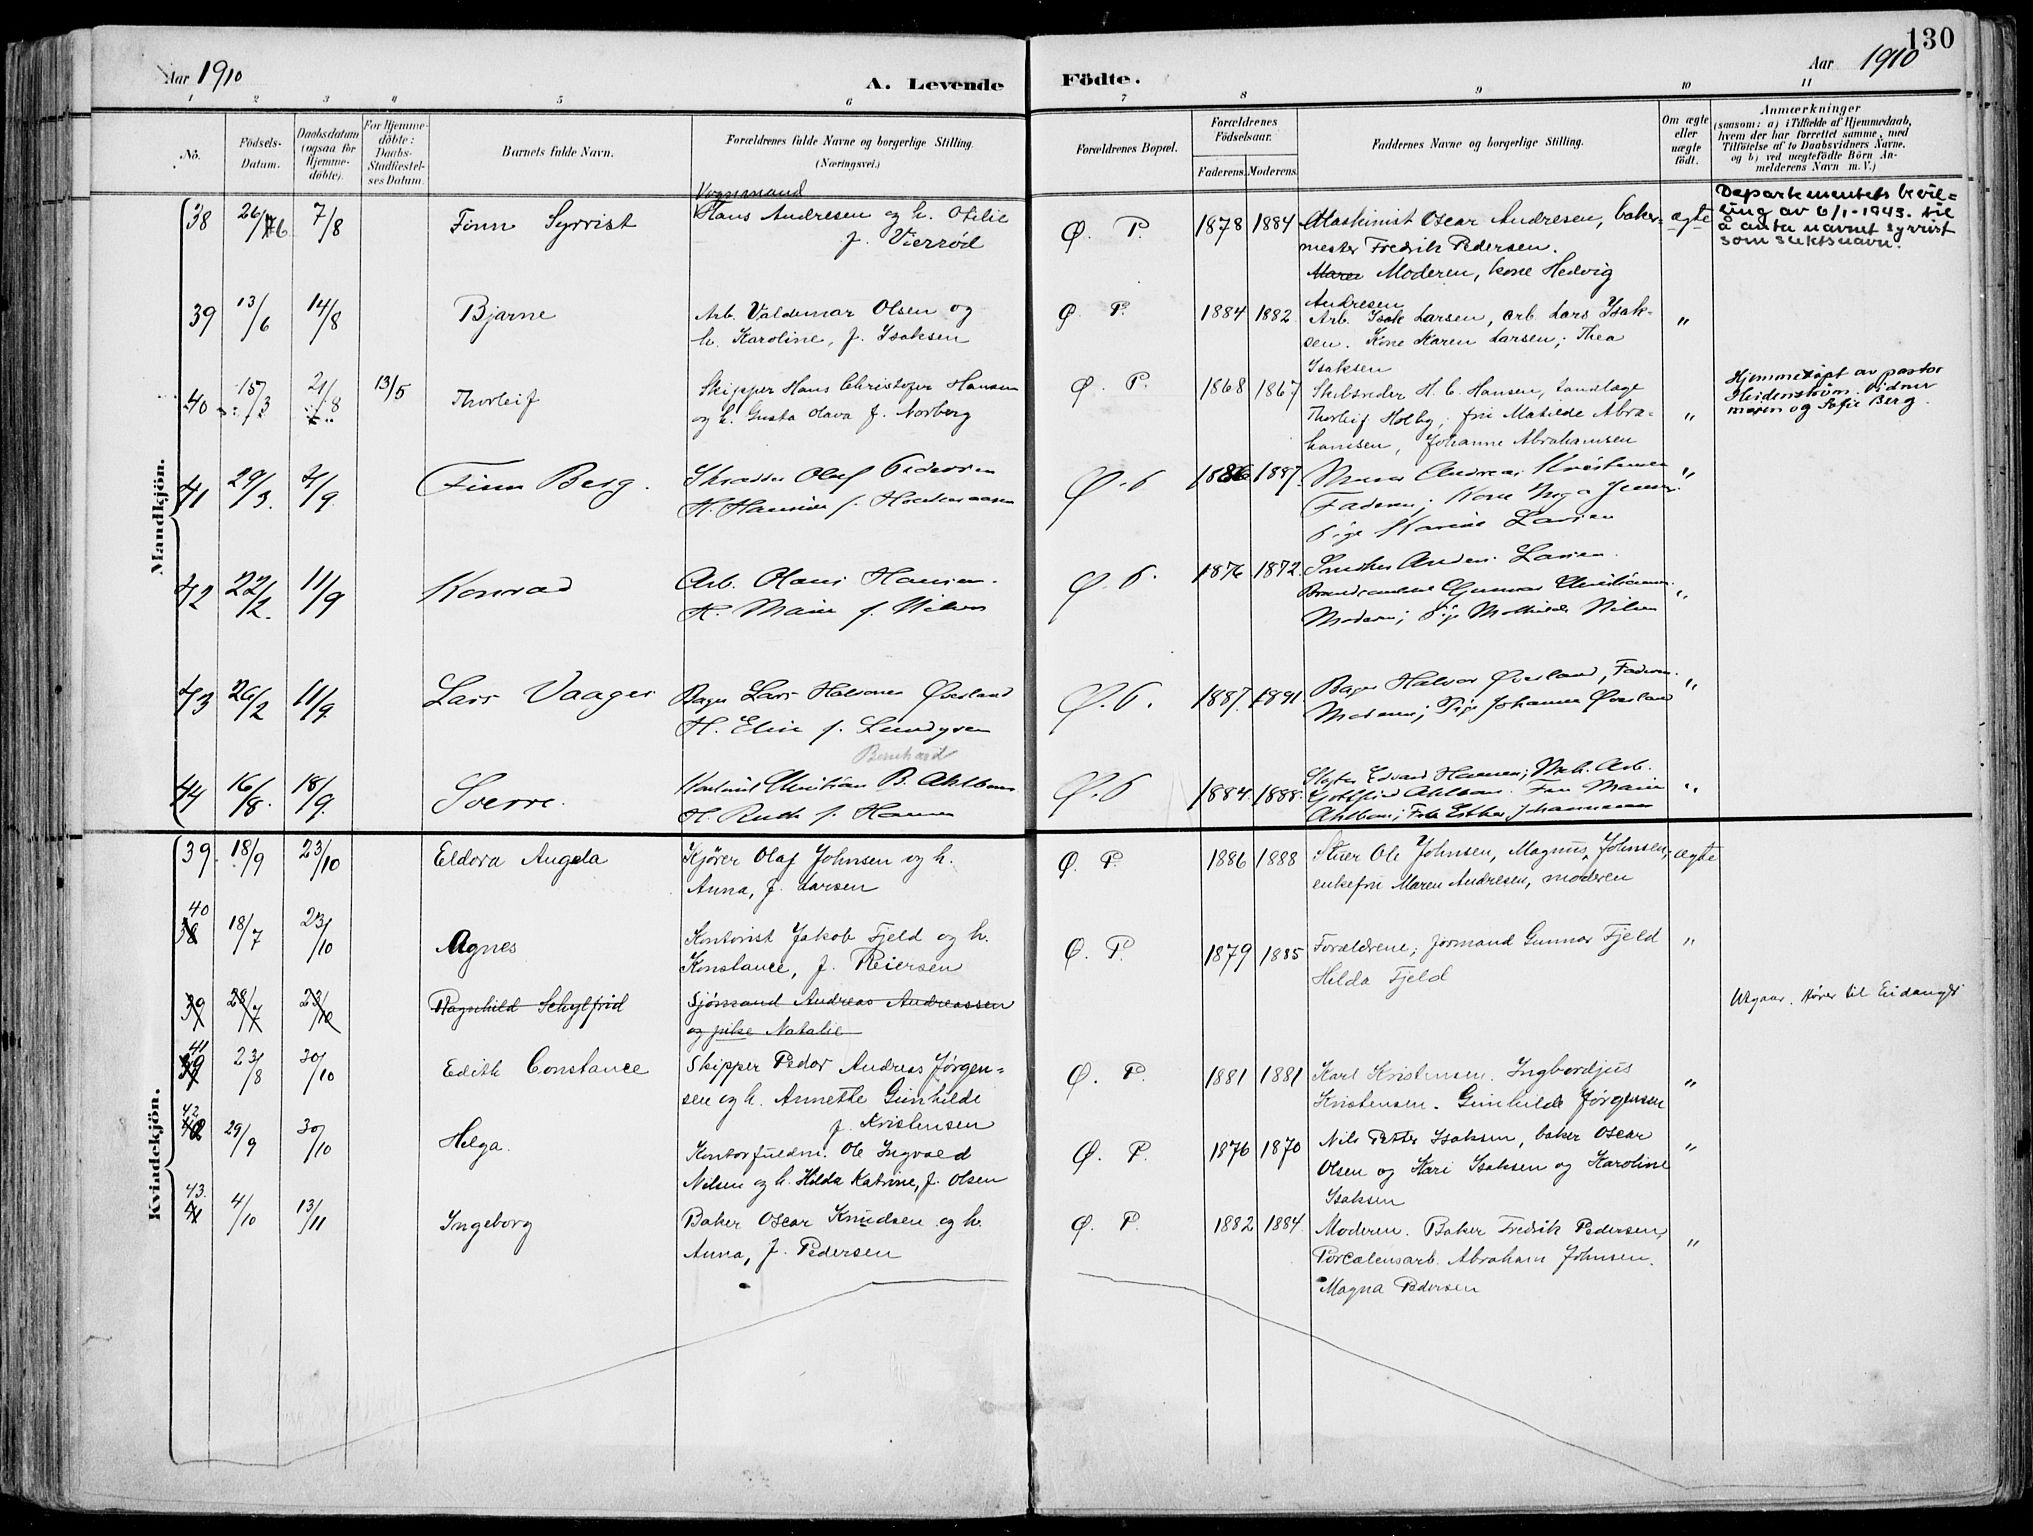 130
Aar 1910
A. Levende Födte.
Aar 1910
1 2 3 4 5 6 7 8 9 10 11
No.
Födsels-Datum.
Daabsdatum (ogsaa for Hjemme-döbte).
For Hjemme-döbte: Daabs-Stadfæstel-ses Datum.
Barnets fulde Navn.
Forældrenes fulde Navne og borgerlige Stilling. (Næringsvei.)
Forældrenes Bopæl.
Forældrenes Födselsaar.
Faderens. Moderens.
Faddernes Navne og borgerlige Stilling.
Om ægte eller uægte födt.
Anmærkninger
(saasom: a) i Tilfælde af Hjemmedaab,
hvem der har forrettet samme, med
Tilföielse af to Daabsvidners Navne.
og b) ved uægtefödte Börn An-
melderens Navn m. V.)
Mandkjön.
38 26/6 7/8 Finn Syrrist
Vognmand
Hans Andresen og h. Otilie
f. Vierrød
Ø. P. 1878 1884
Maskinist Oscar Andresen, baker-
mester Fredrik Pedersen.
Maren Moderen, kone Hedvig
Andresen
ægte
Departementets bevil-
ling av 6/1-1943. til
å anta navnet Syrrist
som slektsnavn.
39 13/6 14/8 Bjarne
Arb. Valdemar Olsen og
h. Karoline, f. Isaksen
Ø P. 1884 1882
Arb. Isak Larsen, arb. Lars Isak-
sen. Kone Karen Larsen; Thea
Isaksen
"
40 15/3 21/8 13/5 Thorleif
Skipper Hans Christofer Hansen
og h. Gusta Olava f. Norberg
Ø. P. 1868 1867
Skibsreder H. C. Hansen, tandlæge
Thorleif Holby; fru Matilde Abra-
hamsen, Johanne Abrahamsen
"
Hjemmedøpt av pastor
Heidenstrøm. Vidner
moren og Sofie Berg.
41 29/3. 4/9. Finn Berg.
Skrædder Olaf Pedersen
Ø. P 1886 1887.
Murer Andreas Kristensen
Faderen; Kone Inga Jensen.
Pige Karine Larsen
"
42 22/2. 11/9 Konrad
Arb. Olaus Hansen.
H. Marie f. Nilsen
Ø. P. 1876 1872.
Snedker Anders Larsen.
Gunnar Christiansen
Moderen; Pige Mathilde Nilsen
"
43 26/2 11/9. Lars Vaager
Bager Lars Halvorsen Øverland
H. Elise f. Lundgren
Ø. P. 1887. 1891.
Bager Halvor Øverland, Faderen.
Moderen; Pige Johanna Øverland
"
44 16/8. 18/9. Sverre.
Bernhard
Christian B. Ahlbom
H. Ruth f. Hansen
Ø. P 1884. 1888.
Slagter Edvard Hansen; Mek. Arb.
Gottfred Ahlbom. Fru Marie
Ahlbom; Frk Esther Johannesen
"
Kvindekjön.
39. 18/9 23/10 Eldora Angela
Kjører Olaf Johnsen og h.
Anna, f. Larsen
Ø P. 1886 1888
Stuer Ole Johnsen, Magnus Johnsen,
enkefru Maren Andresen, moderen
ægte
40
38 18/7 23/10 Agnes
Kontorist Jakob Fjeld og h.
Konstance, f. Reiersen
Ø. P. 1879 1885
Forældrene; formand Gunnar Fjeld
Hilda Fjeld
"
39 28/7 23/10 Ragnhild Schylfrid
Sjømand Andreas Andreassen
og pike Natalie
Utgaar. Hører til Eidanger
41
39 23/8 30/10 Edith Constance
Skipper Peder Andreas Jørgen-
sen og h. Annette Gunhilde
f. Kristensen
Ø. P. 1881 1881
Karl Kristensen. Ingbordjus
Kristensen. Gunhilde Jørgensen
"
42
40 29/9 30/10 Helga.
Kontorfuldm. Ole Ingvald
Nilsen og h. Hilda Katrine, f. Olsen
Ø. P. 1876 1870
Nils Petter Isaksen, baker Oscar
Olsen og Kari Isaksen og Karoline
Isaksen
"
43.
41 4/10 13/11 Ingeborg
Baker Oscar Knudsen og h.
Anna, f. Pedersen
Ø. P. 1882 1884.
Moderen. Baker Fredrik Pedersen,
Porcelensarb. Abraham Johnsen.
Magna Pedersen
"